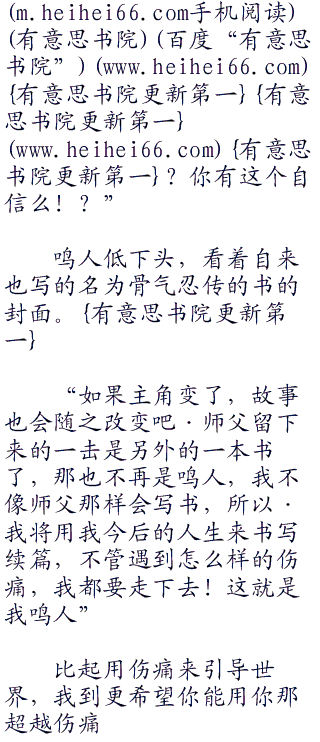 (m.heihei66.com手机阅读)
(有意思书院)(百度“有意思
书院”)(www.heihei66.com)
{有意思书院更新第一}{有意
思书院更新第一}
(www.heihei66.com){有意思
书院更新第一}？你有这个自
信么！？”
鸣人低下头，看着自来
也写的名为骨气忍传的书的
封面。{有意思书院更新第
一}
“如果主角变了，故事
也会随之改变吧·师父留下
来的一击是另外的一本书
了，那也不再是鸣人，我不
像师父那样会写书，所以·
我将用我今后的人生来书写
续篇，不管遇到怎么样的伤
痛，我都要走下去！这就是
我鸣人”
比起用伤痛来引导世
界，我到更希望你能用你那
超越伤痛